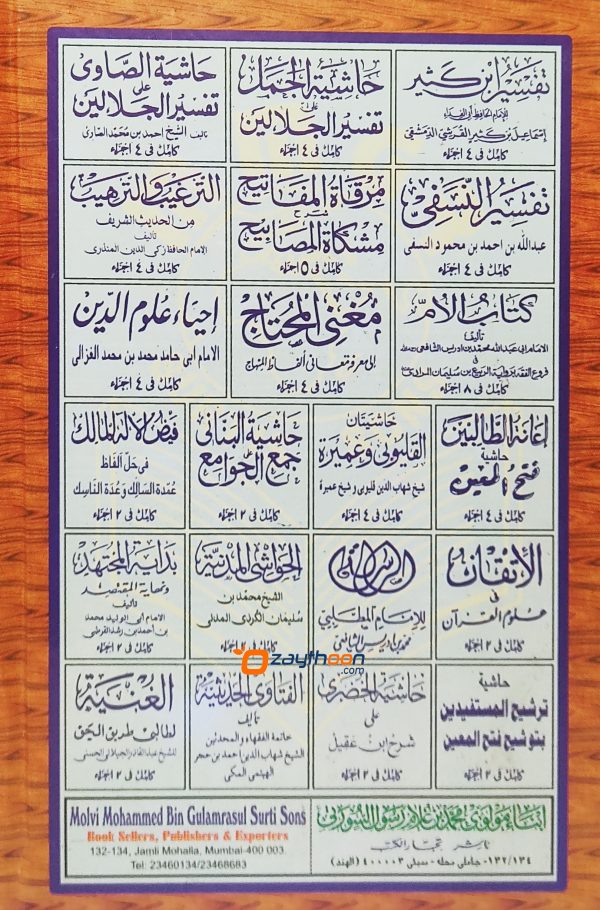 تفسير ابن كثير
للإمام الحافظ أبى الفداء
إسماعيل بن كثير القرشى الدمشقى
كامل فى ٤ اجزاء
حاشية الجمل
على
تفسير الجلالين
كامل فى ٤ اجزاء
حاشية الصاوى
على
تفسير الجلالين
تاليف الشيخ احمد بن محمد الصاوى
كامل فى ٤ اجزاء
تفسير النسفى
عبدالله بن احمد بن محمود النسفى
كامل فى ٤ اجزاء
مرقاة المفاتيح
شرح
مشكاة المصابيح
كامل فى ٥ اجزاء
الترغيب والترهيب
من الحديث الشريف
تأليف
الامام الحافظ زكى الدين المنذرى
كامل فى ٤ اجزاء
كتاب الأم
تأليف
الامام ابى عبدالله محمد بن ادريس الشافعى
فى
فروع الفقه برواية الربيع بن سليمان المرادى
كامل فى ٨ اجزاء
مغنى المحتاج
إلى معرفة معانى ألفاظ المنهاج
كامل فى ٤ اجزاء
إحياء علوم الدين
الامام أبى حامد محمد بن محمد الغزالى
كامل فى ٤ اجزاء
إعانة الطالبين
حاشية
فتح المعين
كامل فى ٤ اجزاء
حاشيتان
القليوبى وعميرة
شيخ شهاب الدين قليوبى و شيخ عميرة
كامل فى ٤ اجزاء
حاشية البنانى
على
جمع الجوامع
كامل فى ٢ اجزاء
فيض الإله المالك
فى حل ألفاظ
عمدة السالك وعدة الناسك
كامل فى ٢ اجزاء
الإتقان
فى
علوم القرآن
كامل فى ٢ اجزاء
الرسالة
للإمام المطلبي
محمد بن ادريس الشافعى
الحواشى المدنية
الشيخ محمد بن
سليمان الكردى المدنى
كامل فى ٢ اجزاء
بداية المجتهد
ونهاية المقتصد
تأليف
الامام أبى الوليد محمد
بن احمد بن رشد القرطبى
كامل فى ٢ اجزاء
zaythoon
.com
حاشية
ترشيح المستفيدين
بتوشيح فتح المعين
كامل فى ٢ اجزاء
حاشية الخضرى
على
شرح ابن عقيل
كامل فى ٢ اجزاء
الفتاوى الحديثية
تأليف
خاتمة الفقهاء والمحدثين
الشيخ شهاب الدين احمد بن حجر
الهيتمى المكى
الغنية
لطالبى طريق الحق
للشيخ عبدالقادر الجيلانى الحسنى
كامل فى ٢ اجزاء
Molvi Mohammed Bin Gulamrasul Surti Sons
Book Sellers, Publishers & Exporters
132-134, Jamli Mohalla, Mumbai-400 003.
Tel: 23460134/23468683
ابناء مولوى محمد بن غلام رسول السورتى
ناشر تجار الكتب
١٣٢/١٣٤- جاملى محله - ممبئى ٤٠٠٠٠٣ (الهند)